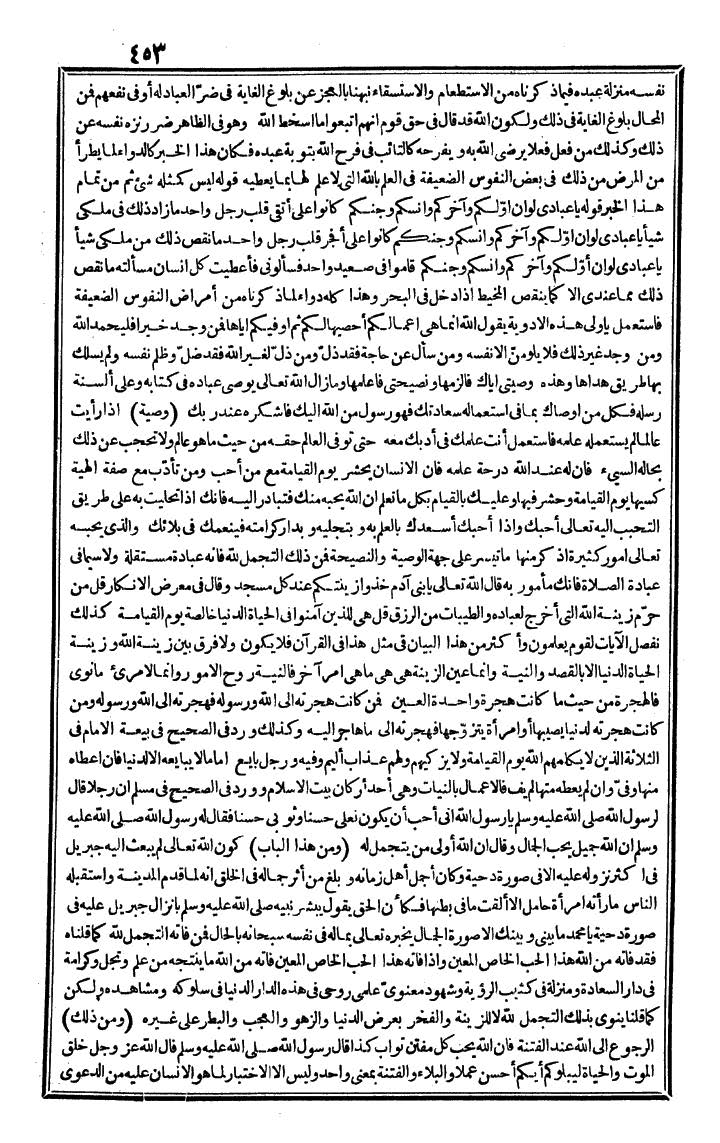 ٤٥٣
نفسه منزلة عبده فيماذكرناه من الاستطعام والاستسقاء نبهنا بالعجز عن بلوغ الغاية فى ضرّ العباد له أو فى نفعهم فن
المحال بلوغ الغاية فى ذلك ولكون الله قد قال فى حق قوم انهم اتبعوا ما اسخط الله وهو فى الظاهر ضرر نزه نفسه عن
ذلك وكذلك من فعل فعلا يرضى الله به ويفرحه كالتائب فى فرح الله بتوبة عبده فكان هذا الخبر كالدواء لما يطرأ
من المرض من ذلك فى بعض النفوس الضعيفة فى العلم بالله التى لا علم لها بما يعطيه قوله ليس كمثله شئ ثم من تمام
هذا الخبر قوله يا عبادى لو ان اوّلكم وآخركم وانسكم وجنكم كانوا على أتقى قلب رجل واحد ما زاد ذلك فى ملكى
شيأ يا عبادى لو ان أوّلكم وآخركم وانسكم وجنكم كانوا على أفجر قلب رجل واحد ما نقص ذلك من ملكى شيأ
يا عبادى لو ان أوّلكم وآخركم وانسكم وجنكم قاموا فى صعيد واحد فسألونى فأعطيت كل انسان مسألته ما نقص
ذلك مما عندى الا كما ينقص المخيط اذا دخل فى البحر وهذا كله دواء لما ذكرناه من أمراض النفوس الضعيفة
فاستعمل يا ولى هذه الادوية يقول الله انما هى اعمالكم أحصيها لكم ثم اوفيكم اياها فن وجد خيرا فليحمد الله
ومن وجد غير ذلك فلا يلومنّ الا نفسه ومن سأل عن حاجة فقد ذلّ ومن ذلّ لغير الله فقد ضلّ وظلم نفسه ولم يسلك
بها طريق هداها وهذه وصيتى اياك فالزمها ونصيحتى فاعلمها وما زال الله تعالى يوصى عباده فى كتابه وعلى ألسنة
رسله فكل من اوصاك بما فى استعماله سعادتك فهو رسول من الله اليك فاشكره عند ربك (وصية) اذا رأيت
عالما لم يستعمله علمه فاستعمل أنت علمك فى أدبك معه حتى توفى العالم حقه من حيث ما هو عالم ولا تحجب عن ذلك
بحاله السيء فان له عند الله درجة علمه فان الانسان يحشر يوم القيامة مع من أحب ومن تأدّب مع صفة الهية
كسيها يوم القيامة وحشر فيها وعليك بالقيام بكل ما تعلم ان الله يحبه منك فتبادر اليه فانك اذا تحليت به على طريق
التحبب اليه تعالى أحبك واذا أحبك أسعدك بالعلم به وبتجليه وبدار كرامته فينعمك فى بلائك والذى يحبه
تعالى امور كثيرة اذكر منها ما تيسر على جهة الوصية والنصيحة فن ذلك التجمل لله فانه عبادة مستقلة ولا سيما فى
عبادة الصلاة فانك مأمور به قال الله تعالى يا بنى آدم خذوا زينتكم عند كل مسجد وقال فى معرض الانكار قل من
حرّم زينة الله التى أخرج لعباده والطيبات من الرزق قل هى للذين آمنوا فى الحياة الدنيا خالصة يوم القيامة كذلك
نفصل الآيات لقوم يعلمون وأكثر من هذا البيان فى مثل هذا فى القرآن فلا يكون ولا فرق بين زينة الله وزينة
الحياة الدنيا الا بالقصد والنية وانما عين الزينة هى هى ما هى امر آخر فالنية روح الامور وانما لامرئ ما نوى
فالهجرة من حيث ما كانت هجرة واحدة العين فن كانت هجرته الى الله ورسوله فهجرته الى الله ورسوله ومن
كانت هجرته لدنيا يصيبها أو امرأة يتزوّجها فهجرته الى ما هاجر اليه وكذلك ورد فى الصحيح فى بيعة الامام فى
الثلاثة الذين لا يكلمهم الله يوم القيامة ولا يزكيهم ولهم عذاب أليم وفيه ورجل بايع اماما لا يبايعه الا لدنيا فان اعطاه
منها وفى وان لم يعطه منها لم يف فالاعمال بالنيات وهى أحد أركان بيت الاسلام وورد فى الصحيح فى مسلم ان رجلا قال
لرسول الله صلى الله عليه وسلم يا رسول الله انى أحب أن يكون نعلى حسنا وثوبى حسنا فقال له رسول الله صلى الله عليه
وسلم ان الله جميل يحب الجمال وقال ان الله أولى من يتجمل له (ومن هذا الباب) كون الله تعالى لم يبعث اليه جبريل
فى اكثر نزوله عليه الا فى صورة دحية وكان أجمل أهل زمانه وبلغ من أثر جماله فى الخلق انه لما قدم المدينة واستقبله
الناس ما رأته امرأة حامل الا ألقت ما فى بطنها فكأن الحق يقول يبشر نبيه صلى الله عليه وسلم بانزال جبريل عليه فى
صورة دحية يا محمد ما بينى وبينك الا صورة الجمال يخبره تعالى بما له فى نفسه سبحانه بالحال فن فاته التجمل لله كما قلناه
فقد فاته من الله هذا الحب الخاص المعين واذا فاته هذا الحب الخاص المعين فاته من الله ما ينتجه من علم وتجل وكرامة
فى دار السعادة ومنزلة فى كثيب الرؤية وشهود معنوىّ علمى روحى فى هذه الدار الدنيا فى سلوكه ومشاهده ولكن
كما قلنا ينوى بذلك التجمل لله لا للزينة والفخر بعرض الدنيا والزهو والعجب والبطر على غيره (ومن ذلك)
الرجوع الى الله عند الفتنة فان الله يحب كل مفتن تواب كذا قال رسول الله صلى الله عليه وسلم قال الله عز وجل خلق
الموت والحياة ليبلوكم أيكم أحسن عملا والبلاء والفتنة بمعنى واحد وليس الا الاختبار لما هو الانسان عليه من الدعوى